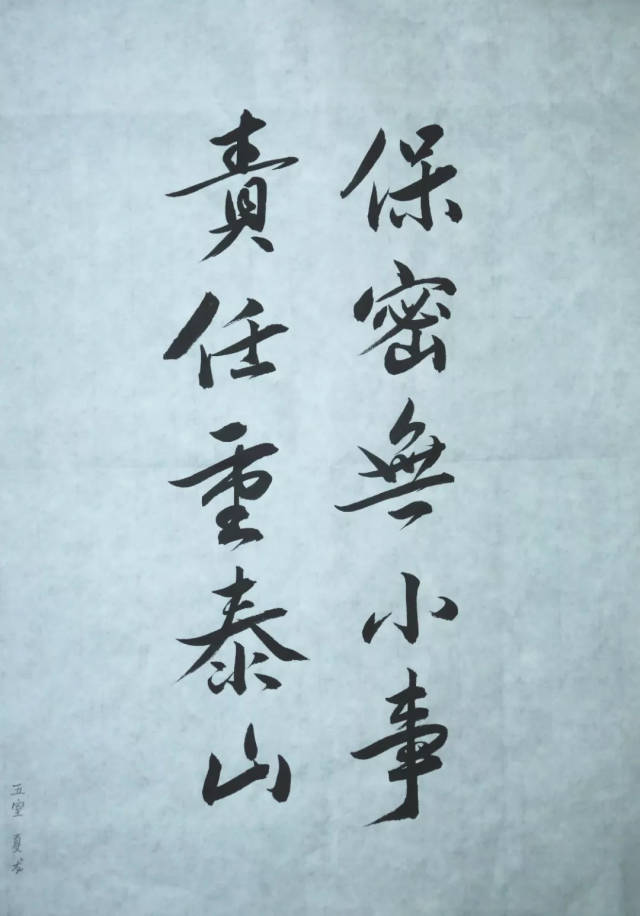 保密無小事
責任重泰山
五室 夏龙